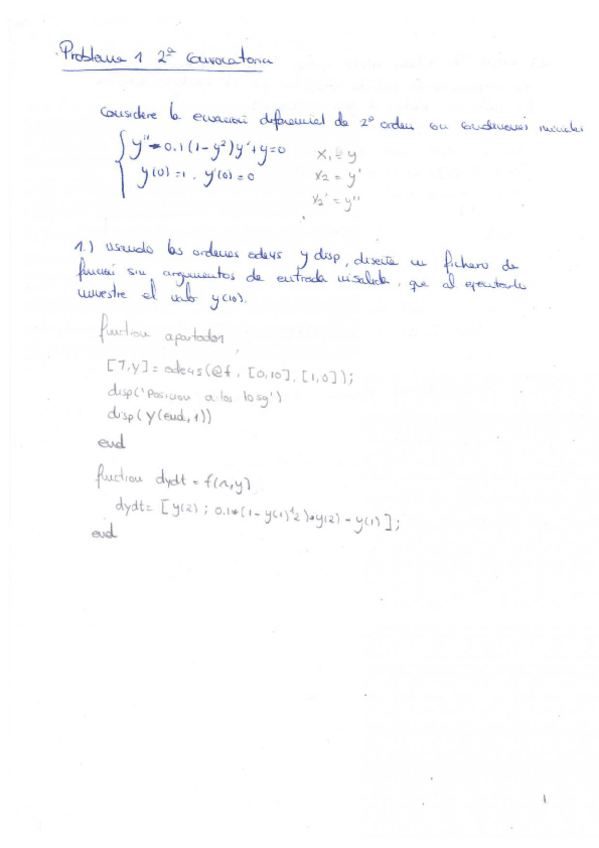 Problema 1 2ª Convocatoria
Considere la ecuación diferencial de 2º orden con condiciones iniciales
y'' - 0.1(1-y²)y' + y = 0
y(0) = 1, y'(0) = 0
x₁ = y
x₂ = y'
x₂' = y''
1.) Usando las ordenes ode45 y disp, diseñe un fichero de
función sin argumentos de entrada ni salida, que al ejecutarlo
muestre el valor y(10).
function apartado1
[T,y] = ode45(@f, [0,10], [1,0]);
disp('Posicion a los 10sg')
disp(y(end,1))
end
function dydt = f(n,y)
dydt = [y(2); 0.1*(1-y(1)^2)*y(2)-y(1)];
end
1